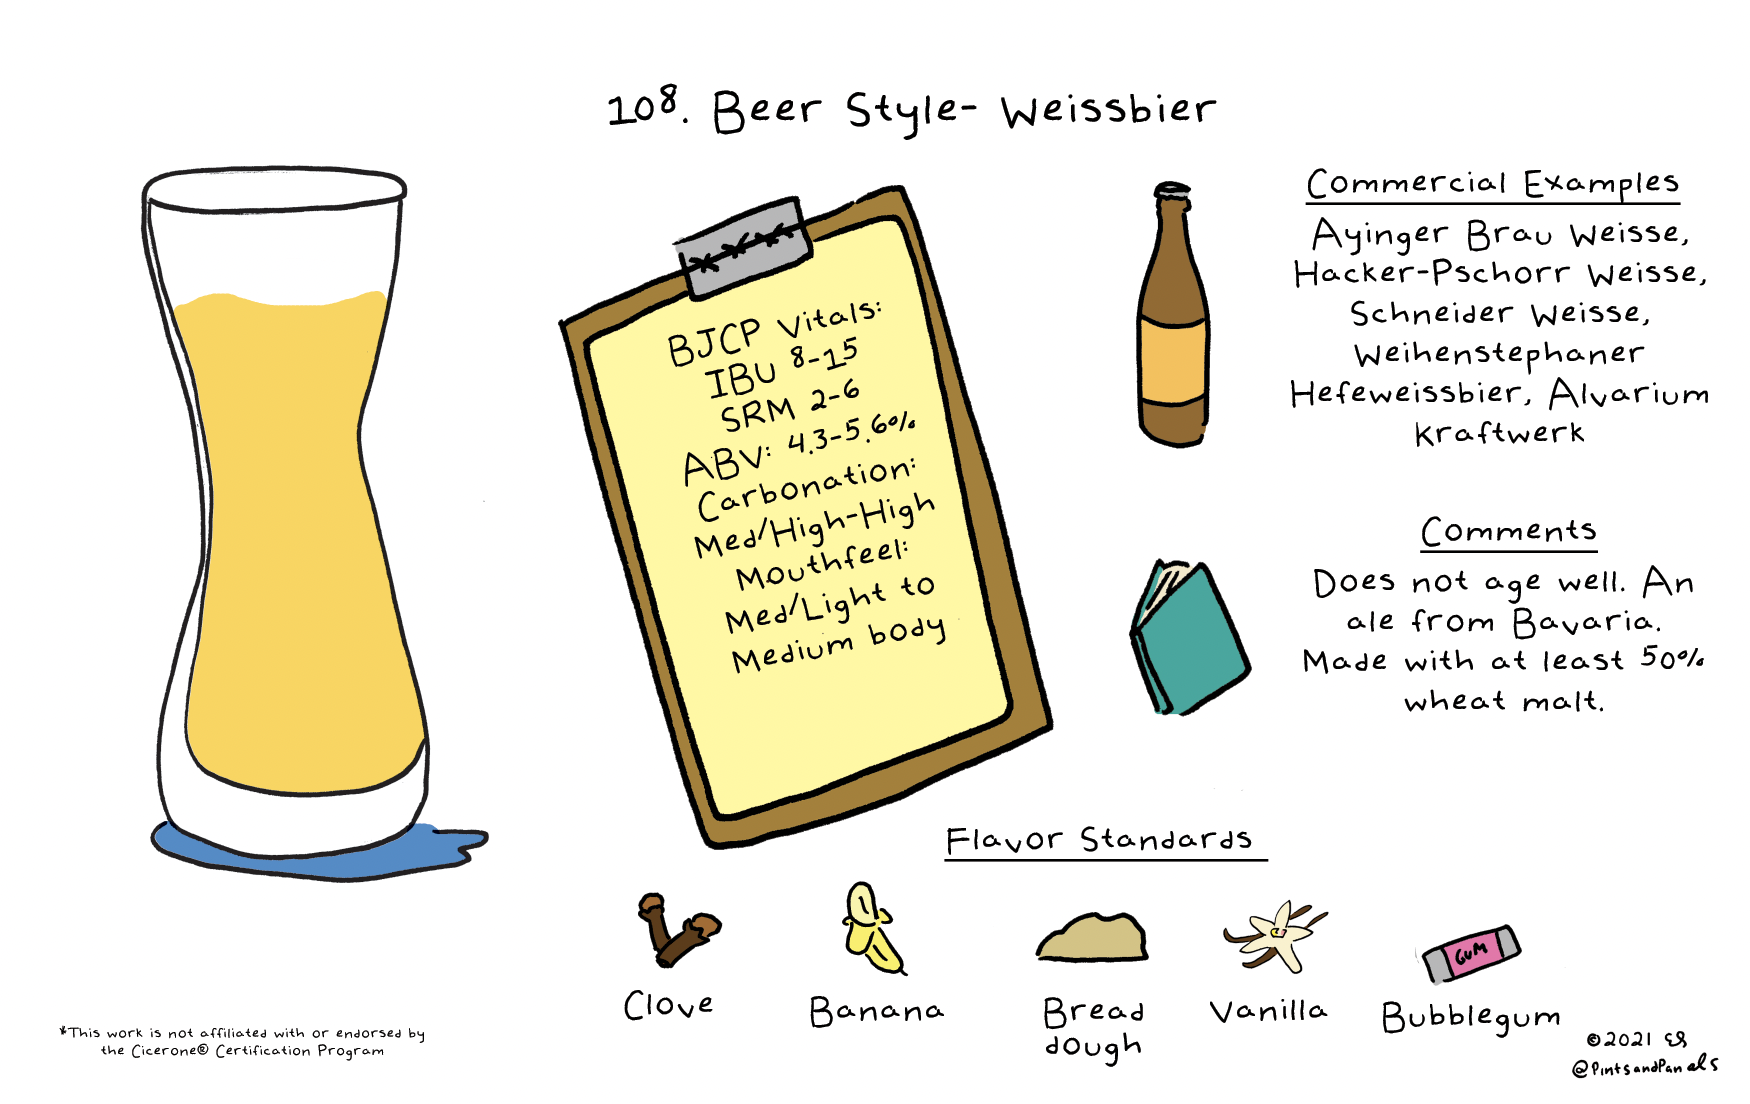 108. Beer Style- Weissbier
BJCP Vitals:
IBU 8-15
SRM 2-6
ABV: 4.3-5.6%
Carbonation:
Med/High-High
Mouthfeel:
Med/Light to
Medium body
Commercial Examples
Ayinger Brau Weisse,
Hacker-Pschorr Weisse,
Schneider Weisse,
Weihenstephaner
Hefeweissbier, Alvarium
Kraftwerk
Comments
Does not age well. An
ale from Bavaria.
Made with at least 50%
wheat malt.
Flavor Standards
Clove
Banana
Bread
dough
Vanilla
GUM
Bubblegum
*This work is not affiliated with or endorsed by
the Cicerone® Certification Program
©2021
@PintsandPanels